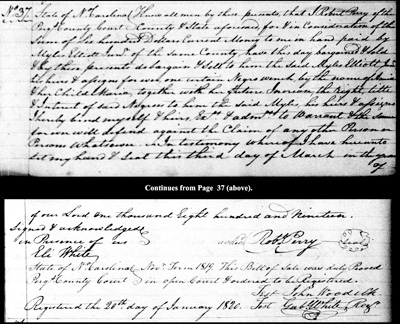 No. 37. State of No. Carolina Know all men by these presents, that I Robert Perry of the
County & State aforesaid, for & in Consideration of the
Sum of Six hundred Dollars Current Money to me in hand paid by
Myles Elliott of the Same County, have this day bargained & sold
& by these presents do bargain & sell to him the said Myles Elliott
his heirs & assigns for ever one certain Negro wench by the name of
& her Child Maria, together with her future Increase, the Right, title
& Interest of said Negroes to him the said Myles, his heirs & assigns
I hereby bind myself & heirs, Exrs. & admrs. to Warrant & the same
for ever will defend against the Claim of any other Person or
Persons Whatsoever. In testimony whereof I have hereunto
set my hand & Seal this third day of March in the year
of
Continues from Page 37 (above).
of our Lord one thousand Eight hundred and Nineteen.
Signed & acknowledged
in Presence of us
Robt. Perry
Eli White
State of No. Carolina Novr. Term 1819. This Bill of Sale was duly Proved
County Court in open Court & ordered to be Registered.
Test John Wood Clk
Registered the 20th day of January 1820. Test White Regr.